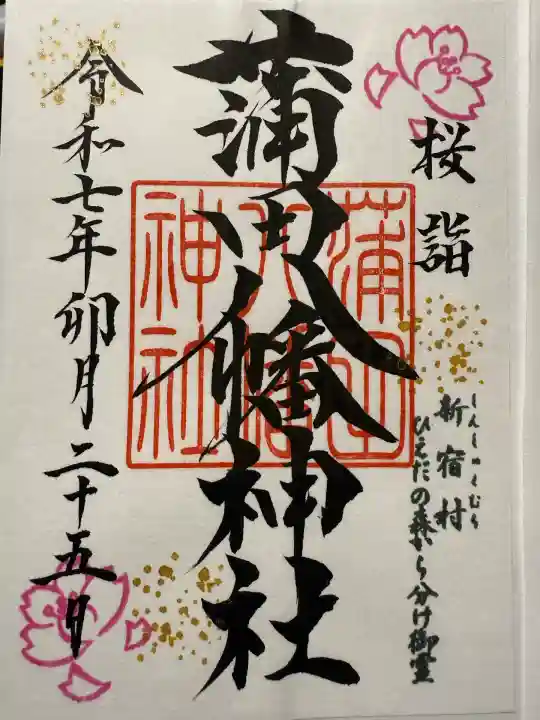 桜詣
新宿村
しんしゅくむら
ひえだの森から分け御霊
蒲田八幡神社
蒲田八幡神社
令和七年卯月二十五日